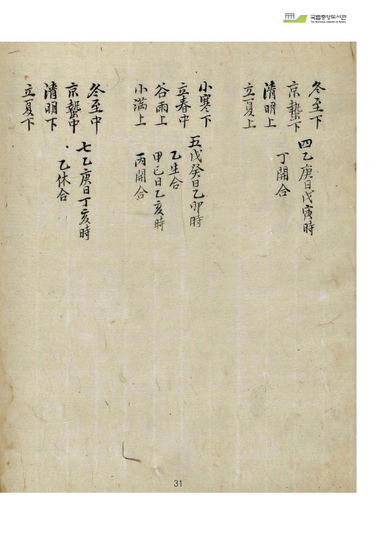 국립중앙도서관
冬至下
京蟄下 四乙庚日戊寅時
清明上 丁開合
立夏上
小寒下
立春中 五戊癸日乙卯時
谷雨上 乙生合
小滿上 甲己日乙亥時
丙開合
冬至中
京蟄中 七乙庚日丁亥時
清明下 乙休合
立夏下
31